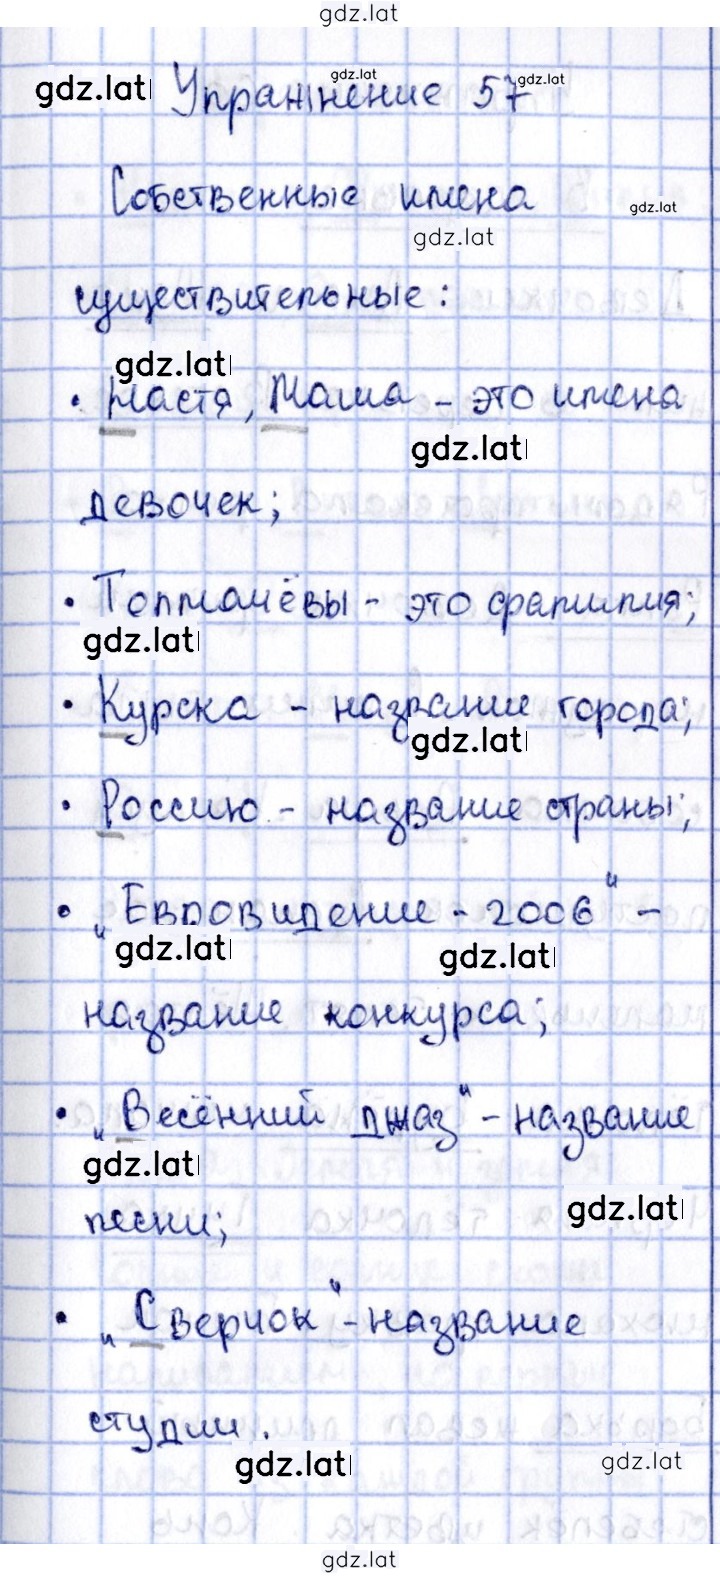 gdz.lat
gdz.lat
gdz.lat Упражнение 57 gdz.lat
Собственные имена gdz.lat
gdz.lat
существительные:
gdz.lat
• Настя, Маша - это имена
gdz.lat
девочек;
• Толмачёвы - это фамилия;
gdz.lat
• Курска - название города;
gdz.lat
• Россию - название страны;
• „Евровидение - 2006" -
gdz.lat gdz.lat
название конкурса;
• „Весённий джаз" - название
gdz.lat
gdz.lat
песни;
• „Сверчок" - название
студии.
gdz.lat gdz.lat
gdz.lat